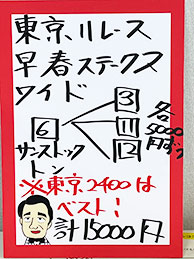 東京11レース
早春ステークス
ワイド
③
⑥ ⑪
⑫
各5000円ずつ
サンストックトン
※東京2400は
ベスト!
計15000円